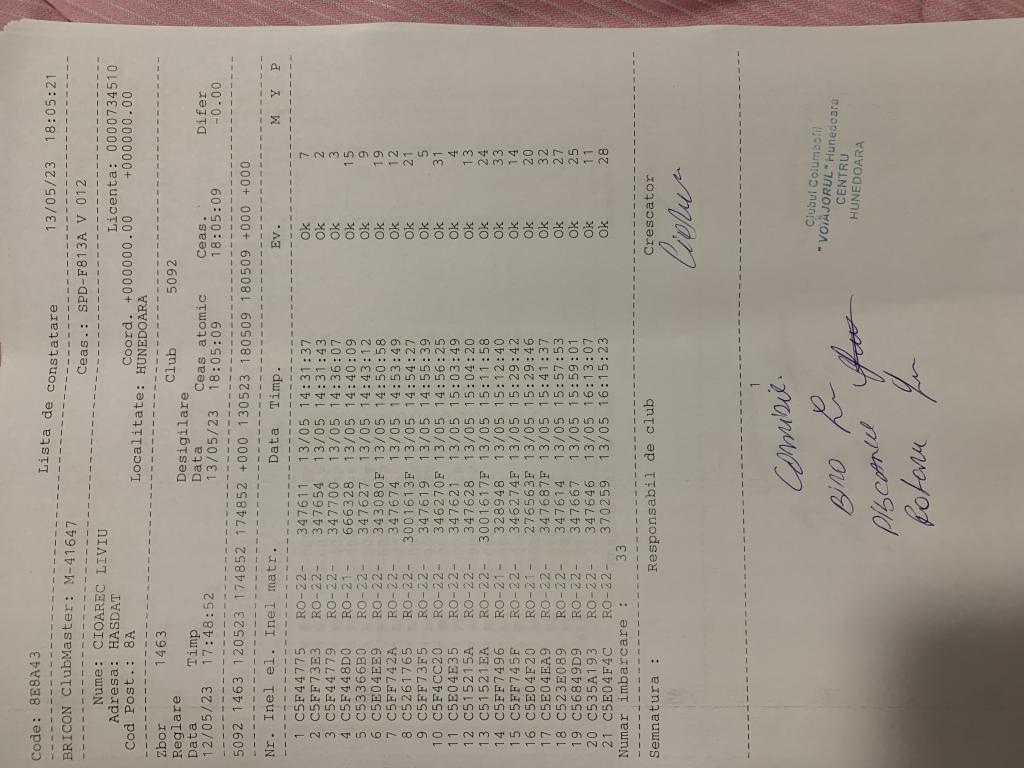 Code: 8E8A43 Lista de constatare 13/05/23 18:05:21
BRICON ClubMaster: M-41647 Ceas.: SPD-F813A V 012
Nume: CIOAREC LIVIU Licenta: 0000734510
Adresa: HASDAT Coord. +000000.00 +000000.00
Cod Post.: 8A Localitate: HUNEDOARA
Zbor 1463 Club 5092
Reglare Desigilare
Data Timp Data Ceas atomic Ceas. Difer
12/05/23 17:48:52 13/05/23 18:05:09 18:05:09 -0.00
5092 1463 120523 174852 174852 174852 +000 130523 180509 180509 180509 +000 +000
Nr. Inel el. Inel matr. Data Timp. Ev. M Y P
1 C5F44775 RO-22- 347611 13/05 14:31:37 Ok 7
2 C5FF73E3 RO-22- 347654 13/05 14:31:43 Ok 2
3 C5F44779 RO-22- 347700 13/05 14:36:07 Ok 3
4 C5F448D0 RO-21- 666328 13/05 14:40:09 Ok 15
5 C53366B0 RO-22- 347627 13/05 14:43:12 Ok 9
6 C5E04EE9 RO-22- 343080F 13/05 14:50:58 Ok 19
7 C5FF742A RO-22- 347674 13/05 14:53:49 Ok 12
8 C5261765 RO-22- 3001613F 13/05 14:54:27 Ok 21
9 C5FF73F5 RO-22- 347619 13/05 14:55:39 Ok 5
10 C5F4CC20 RO-22- 346270F 13/05 14:56:25 Ok 31
11 C5E04E35 RO-22- 347621 13/05 15:03:49 Ok 4
12 C515215A RO-22- 347628 13/05 15:04:20 Ok 13
13 C51521EA RO-22- 3001617F 13/05 15:11:58 Ok 24
14 C5FF7496 RO-21- 328948 13/05 15:12:40 Ok 33
15 C5FF745F RO-22- 346274F 13/05 15:29:42 Ok 14
16 C5E04F20 RO-21- 276563F 13/05 15:29:46 Ok 20
17 C5E04EA9 RO-22- 347687F 13/05 15:41:37 Ok 32
18 C523E089 RO-22- 347614 13/05 15:57:53 Ok 27
19 C56849D9 RO-22- 347667 13/05 15:59:01 Ok 25
20 C535A193 RO-22- 347646 13/05 16:13:07 Ok 11
21 C5E04F4C RO-22- 370259 13/05 16:15:23 Ok 28
Numar imbarcare : 33
Semnatura : Responsabil de club Crescator
1
Biro
Clubul Columbofil
"VOIAJORUL" Hunedoara
CENTRU
HUNEDOARA